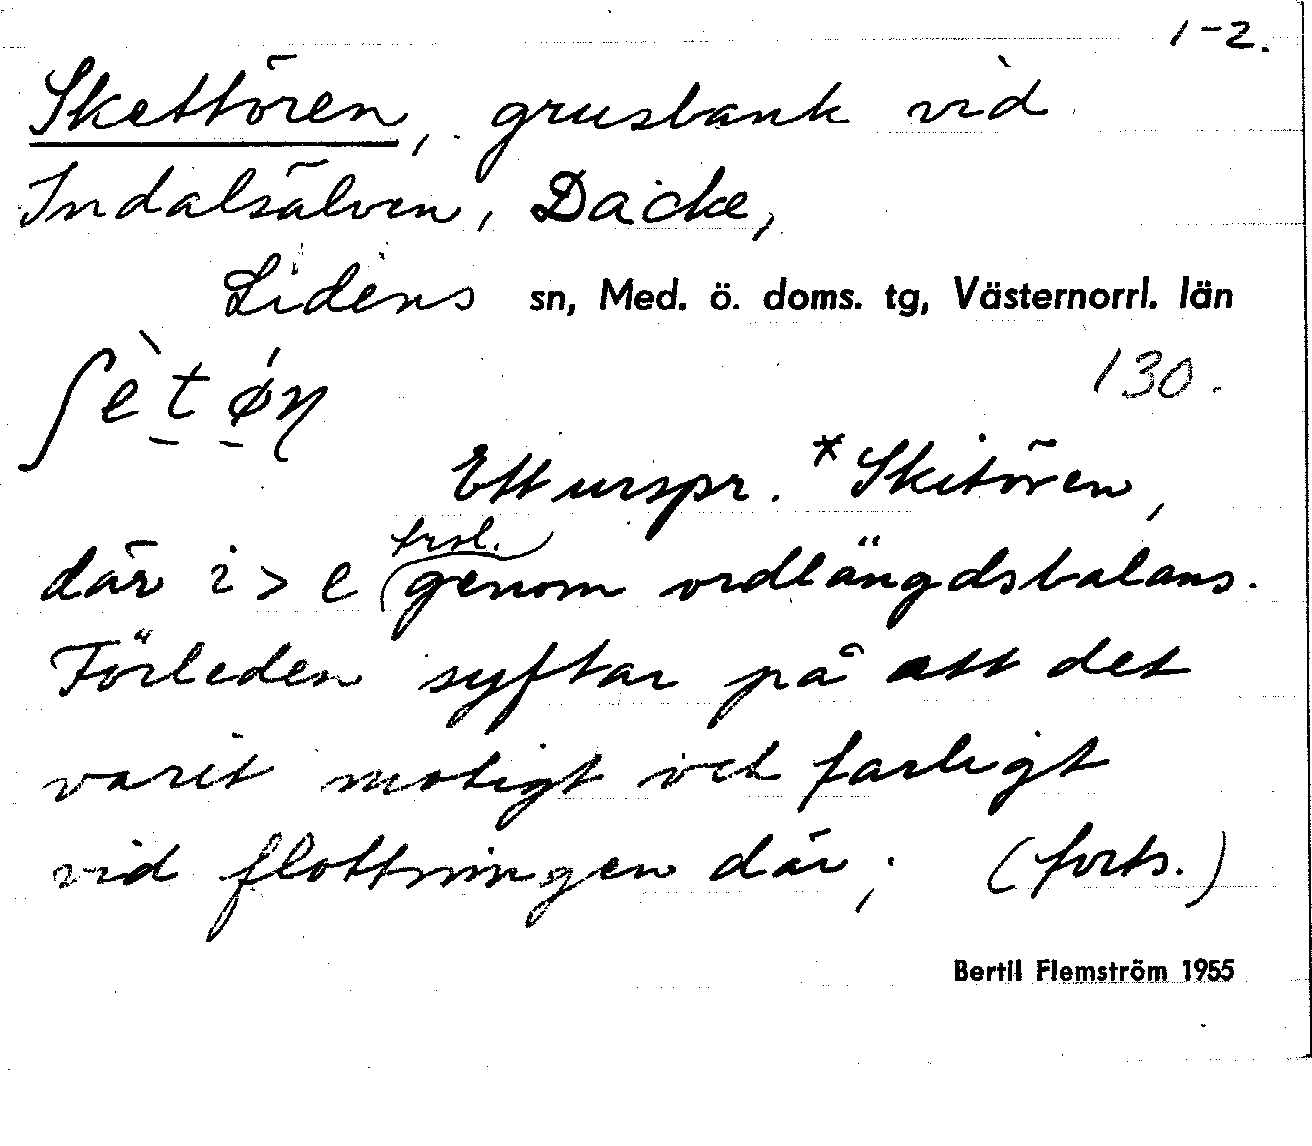 1-2.
Skettören, grusbank vid
Indalsälven, Dacke,
Lidens sn, Med. ö. doms. tg, Västernorrl. län
ʃètǿn
130.
Ett urspr. *Skitören,
där i > e (trol. genom ordlängdsbalans.
Förleden syftar på att det
varit motigt och farligt
vid flottningen där; (forts.)
Bertil Flemström 1955